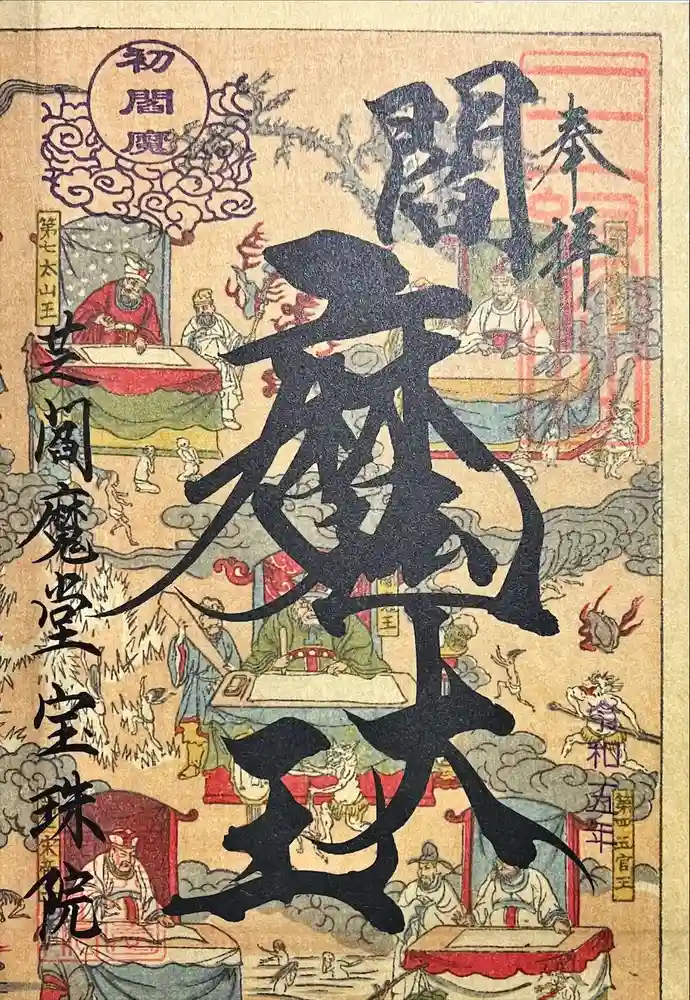 奉拝
閻魔大王
初閻魔
芝閻魔堂宝珠院
令和五年
第七太山王
第四五官王